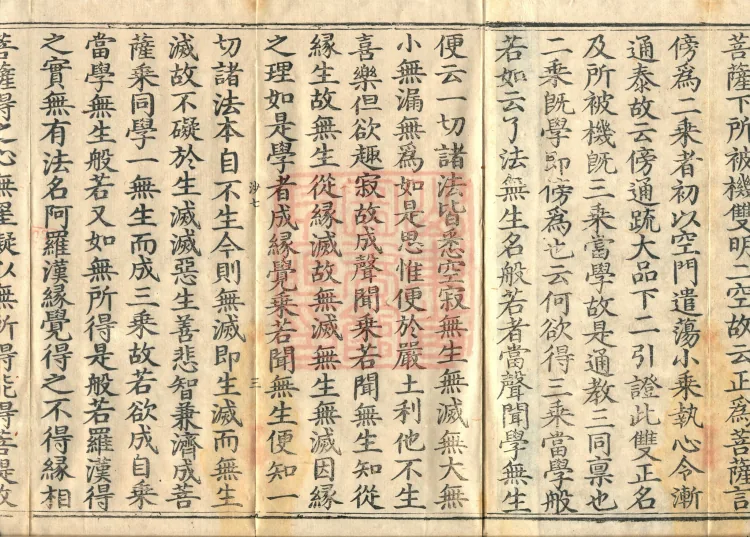 菩薩下所被機雙明二空故云正為菩薩言
傍為二乘者初以空門遣蕩小乘執心令漸
通泰故云傍通䟽大品下二引證此雙正名
及所被機旣三乘當學故是通教三同禀也
二乘旣學即傍為也云何欲得三乘當學般
若如云了法無生名般若者當聲聞學無生
便云一切諸法皆悉空寂無生無滅無大無
小無漏無為如是思惟便於嚴土利他不生
喜樂但欲趣寂故成聲聞乘若聞無生知從
緣生故無生從緣滅故無滅無生無滅因緣
之理如是學者成緣覺乘若聞無生便知一
沙七
三
切諸法本自不生今則無滅即生滅而無生
滅故不礙於生滅滅惡生善悲智兼濟成菩
薩乘同學一無生而成三乘故若欲成自乘
當學無生般若又如無所得是般若羅漢得
之實無有法名阿羅漢緣覺得之不得緣相
菩薩得之心無罣礙以無所得能得菩提故